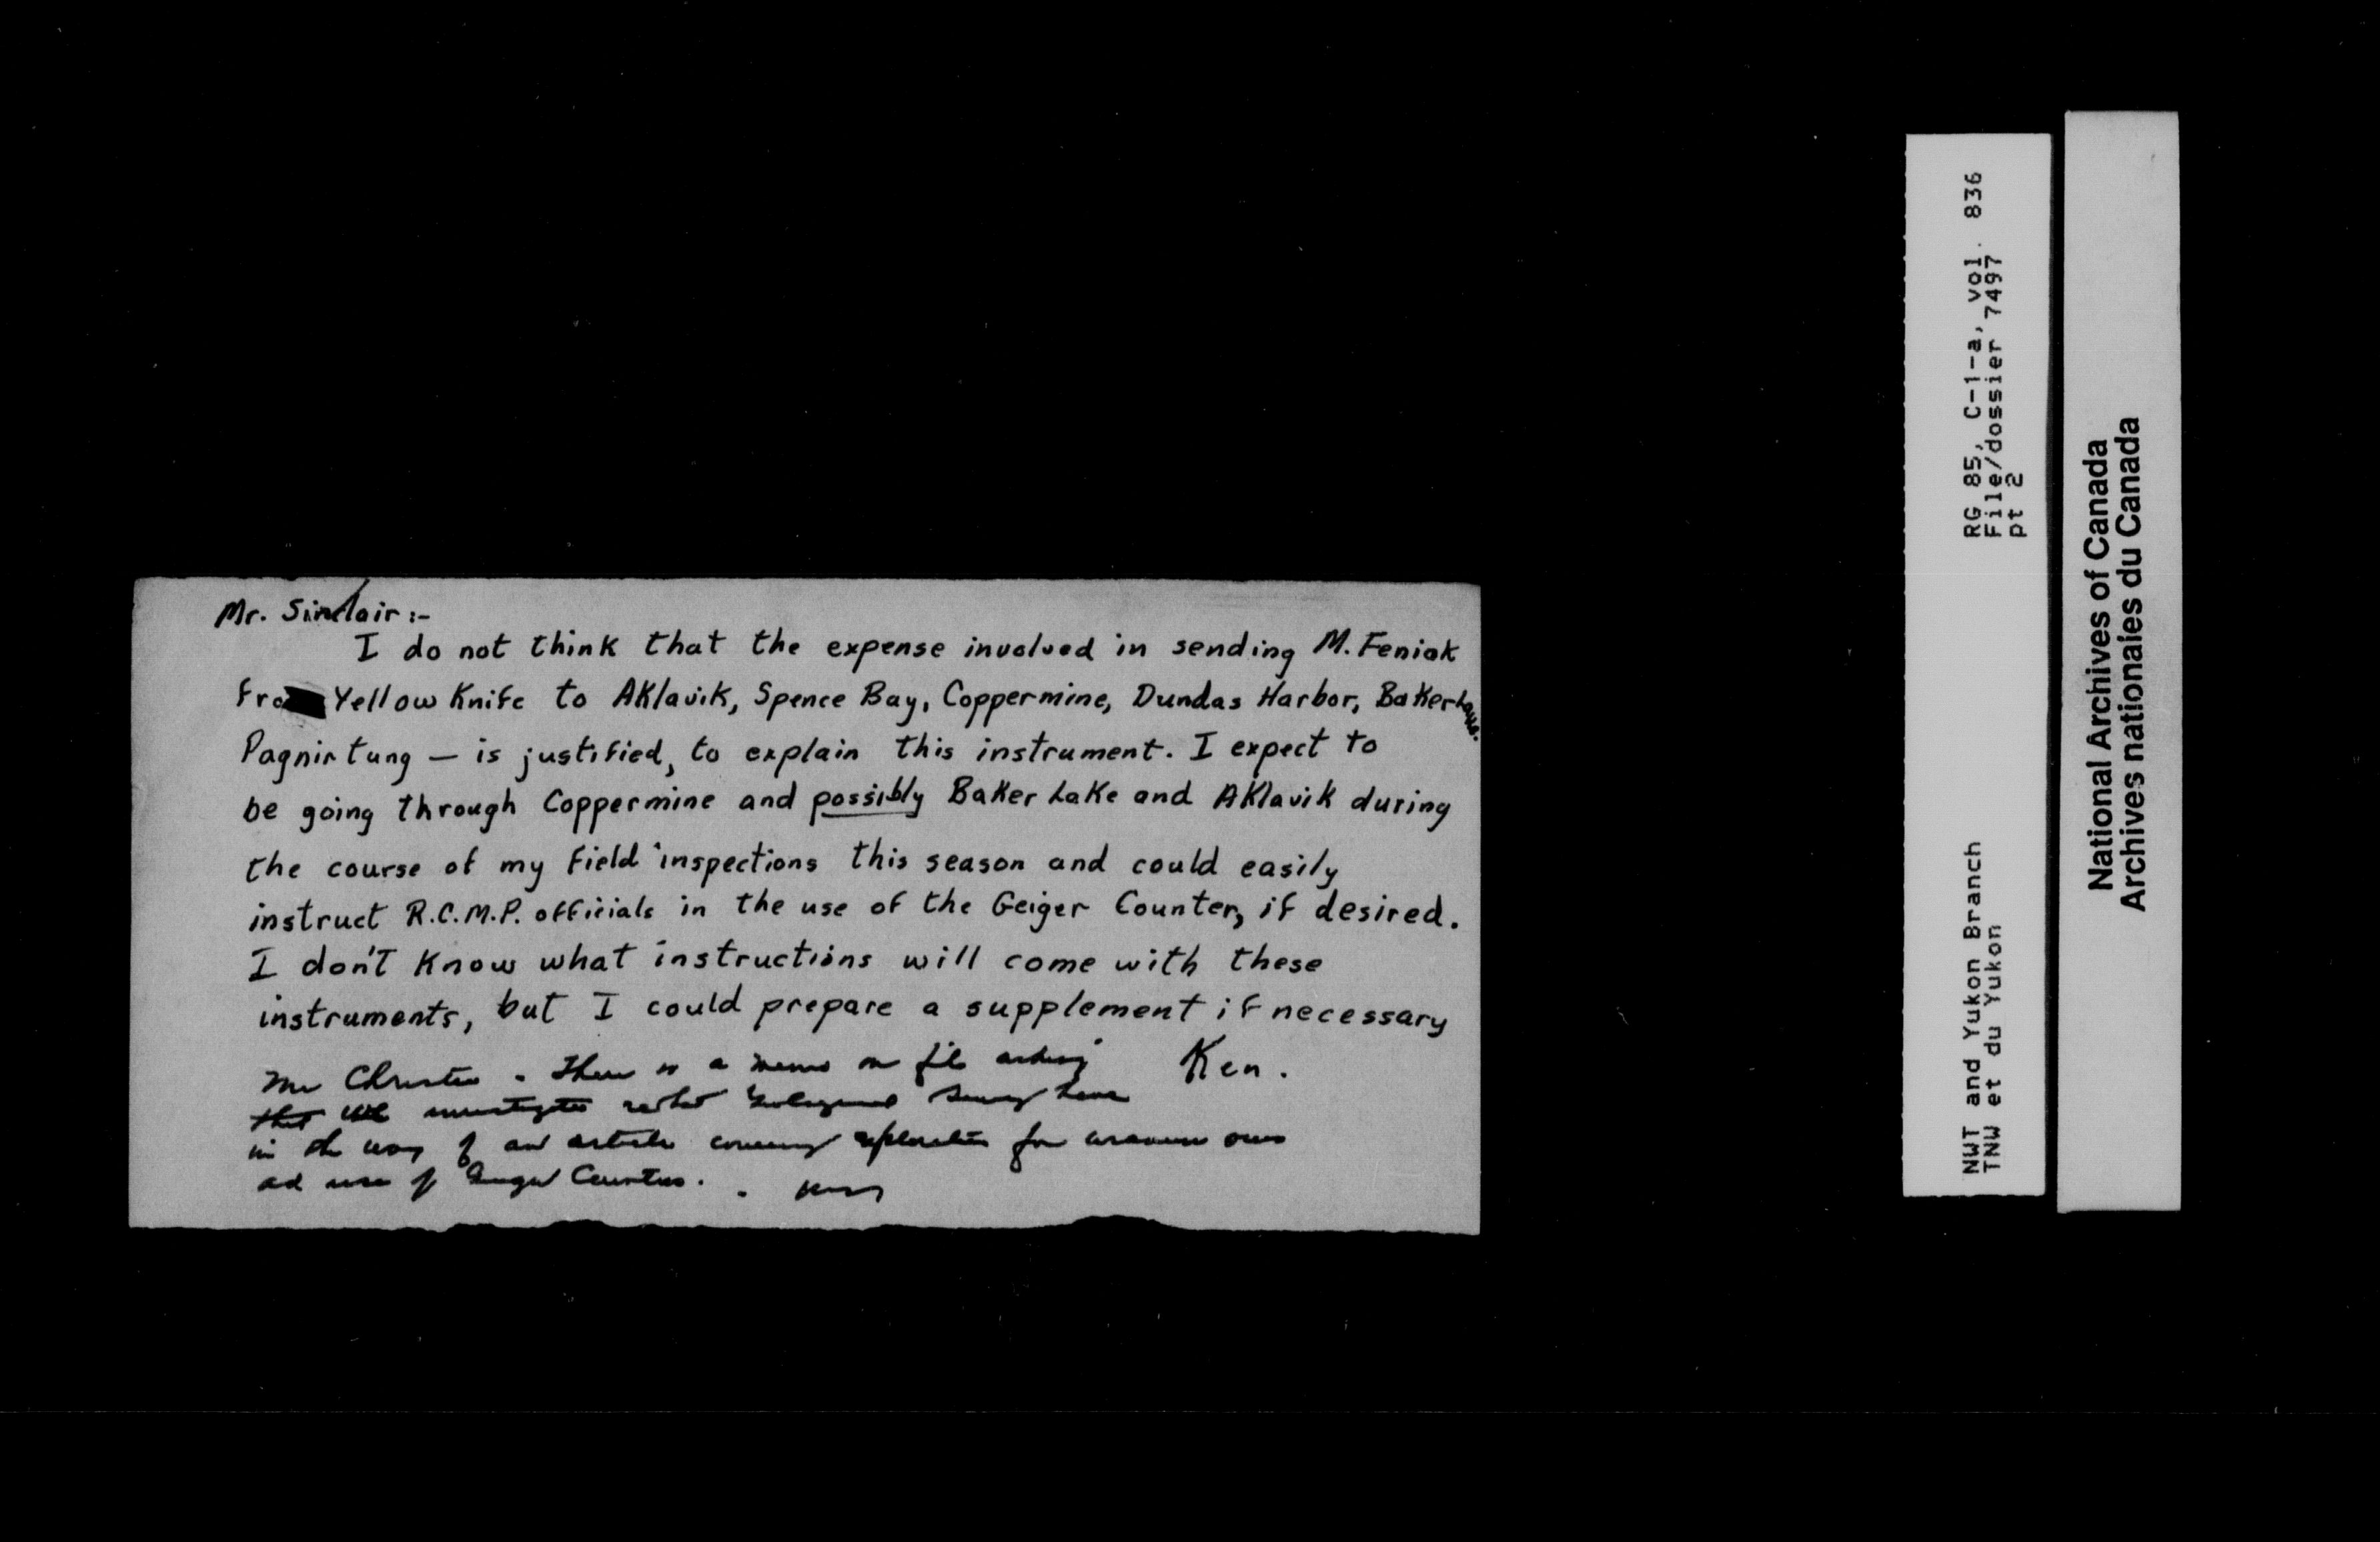 Mr. Sinclair:-
I do not think that the expense involved in sending M. Feniak
from Yellow Knife to Aklavik, Spence Bay, Coppermine, Dundas Harbor, Baker Lake.
Pagnirtung — is justified, to explain this instrument. I expect to
be going through Coppermine and possibly Baker Lake and Aklavik during
the course of my field inspections this season and could easily
instruct R.C.M.P. officials in the use of the Geiger Counter, if desired.
I don't know what instructions will come with these
instruments, but I could prepare a supplement if necessary
Ken.
Mr Christie. There is a memo on file asking
that we investigate what Geological Survey have
in the way of an article covering exploration for uranium ores
and use of Geiger Counters.
RG 85, C-1-a, vol. 836
File/dossier 7497
pt 2
NWT and Yukon Branch
TNW et du Yukon
National Archives of Canada
Archives nationales du Canada